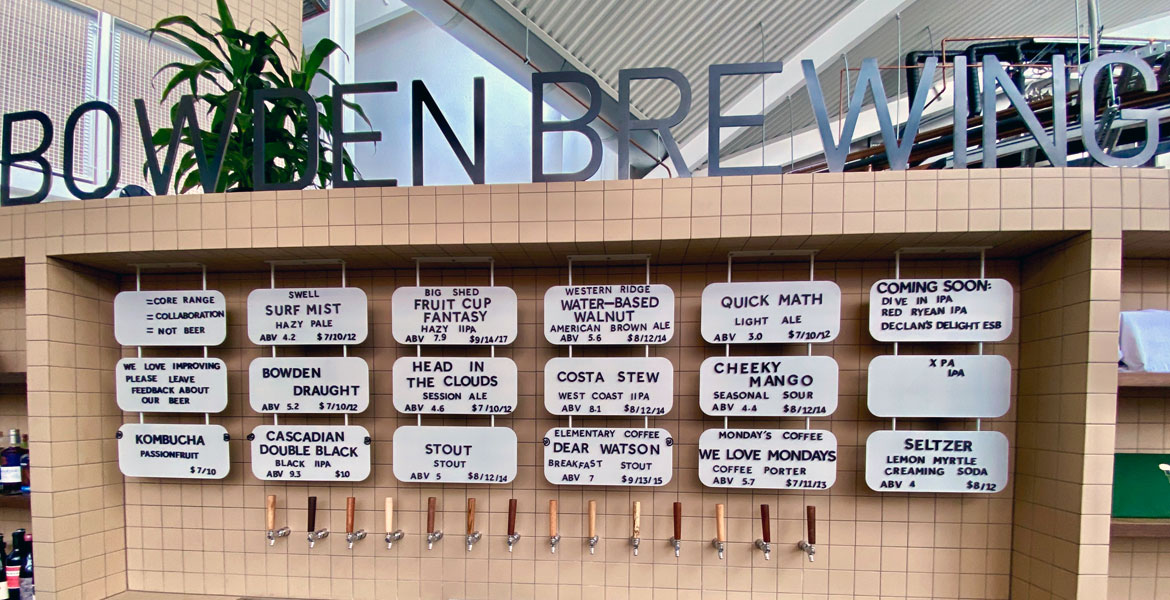 BOWDEN BREWING
=CORE RANGE
=COLLABORATION
= NOT BEER
WE LOVE IMPROVING
PLEASE LEAVE
FEEDBACK ABOUT
OUR BEER
KOMBUCHA
PASSIONFRUIT
$7/10
SWELL
SURF MIST
HAZY PALE
ABV 4.2 $7/10/12
BOWDEN
DRAUGHT
ABV 5.2 $7/10/12
CASCADIAN
DOUBLE BLACK
BLACK IIPA
ABV 9.3 $10
BIG SHED
FRUIT CUP
FANTASY
HAZY IIPA
ABV 7.9 $9/14/17
HEAD IN
THE CLOUDS
SESSION ALE
ABV 4.6 $7/10/12
STOUT
STOUT
ABV 5 $8/12/14
WESTERN RIDGE
WATER-BASED
WALNUT
AMERICAN BROWN ALE
ABV 5.6 $8/12/14
COSTA STEW
WEST COAST IIPA
ABV 8.1 $8/12/14
ELEMENTARY COFFEE
DEAR WATSON
BREAKFAST STOUT
ABV 7 $9/13/15
QUICK MATH
LIGHT ALE
ABV 3.0 $7/10/12
CHEEKY
MANGO
SEASONAL SOUR
ABV 4.4 $8/12/14
MONDAY'S COFFEE
WE LOVE MONDAYS
COFFEE PORTER
ABV 5.7 $7/11/13
COMING SOON:
DIVE IN IPA
RED RYEAN IPA
DECLAN'S DELIGHT ESB
XPA
IPA
SELTZER
LEMON MYRTLE
CREAMING SODA
ABV 4 $8/12